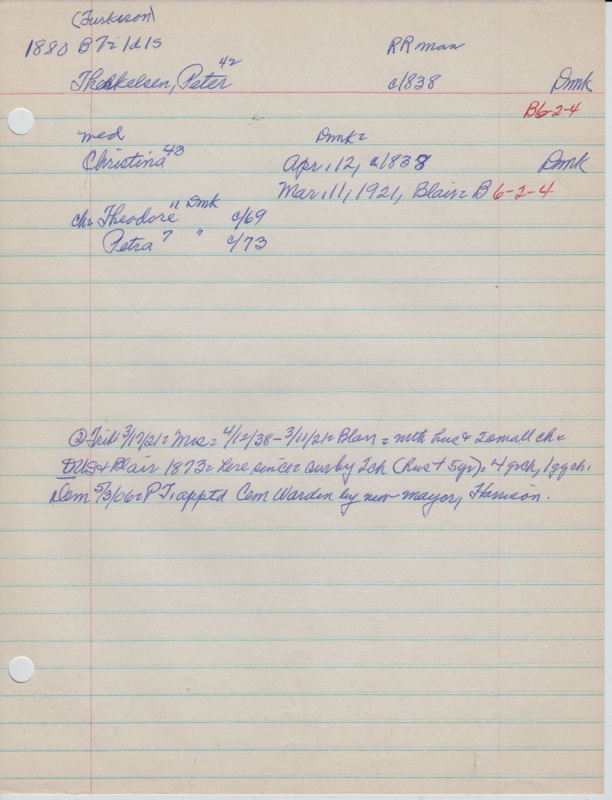 (Turkison)
1880 B 7 1/d/s RR man
Thekelsen, Peter 42 c1838 Dmk
B6-2-4
med Dmk=
Christina 43 Apr. 12, c1838 Dmk
Mar. 11, 1921, Blair= B 6-2-4
ch= Theodore 11 Dmk c/69
Petra 7 " c/73
② Trib 3/17/21= Mrs= 4/12/38-3/11/21= Blair= with hus & 2 small ch=
US & Blair 1873= here since= surby 2ch (hus + 5yr)= 4 grch, 1 ggch.
Dem 5/3/06= P T. apptd Cem Warden by new mayor, Harrison.